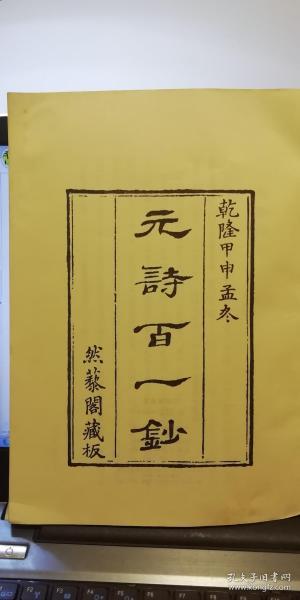 乾隆甲申孟冬
元詩百一鈔
然藜閣藏板
孔夫子旧书网